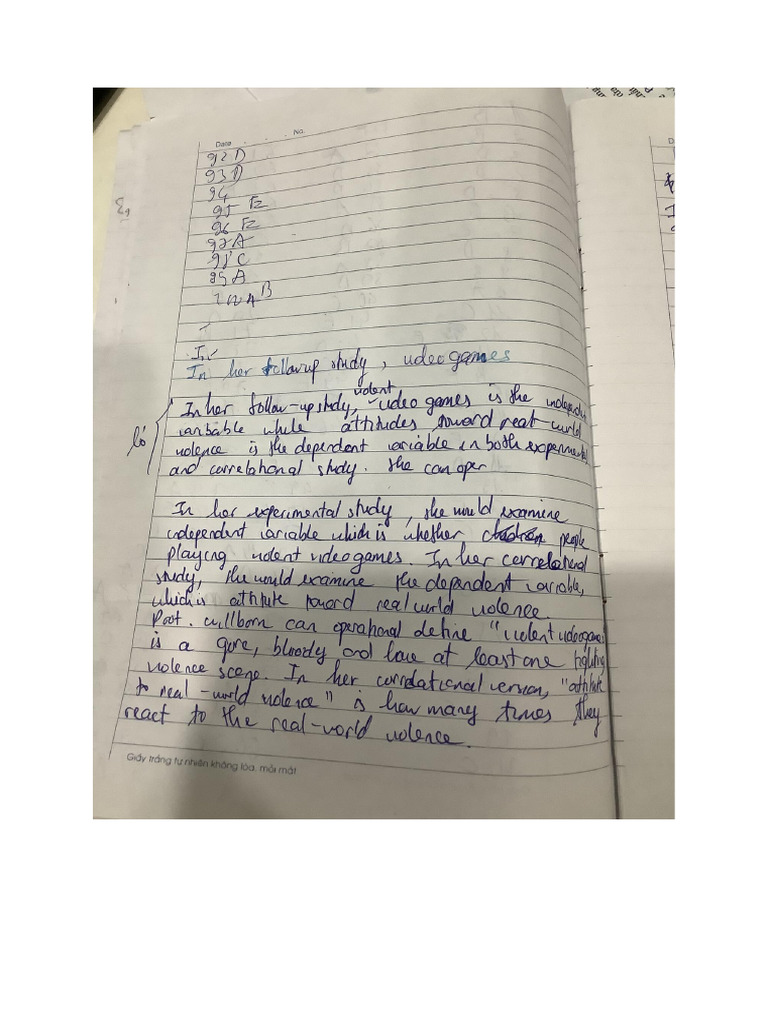 Date No.
92 D
93 D
94
95 Fz
96 Fz
97 A
98 C
99 A
100 A B
In
In her followup study, video games
In her follow-up study, violent video games is the independent
varibable while attitudes toward real-world
violence is the dependent variable in both experimental
and correlational study. She can oper
In her experimental study, she would examine
independent variable which is whether people
playing violent videogames. In her correlational
study, she would examine the dependent variable,
which is attitute toward real world violence.
Root. Millborn can operational define "violent videogames
is a gore, bloody and have at least one fighting
violence scene. In her correlational version, "attitute
to real-world violence" is how many times they
react to the real-world violence.
Giấy trắng tự nhiên không lóa, mỏi mắt